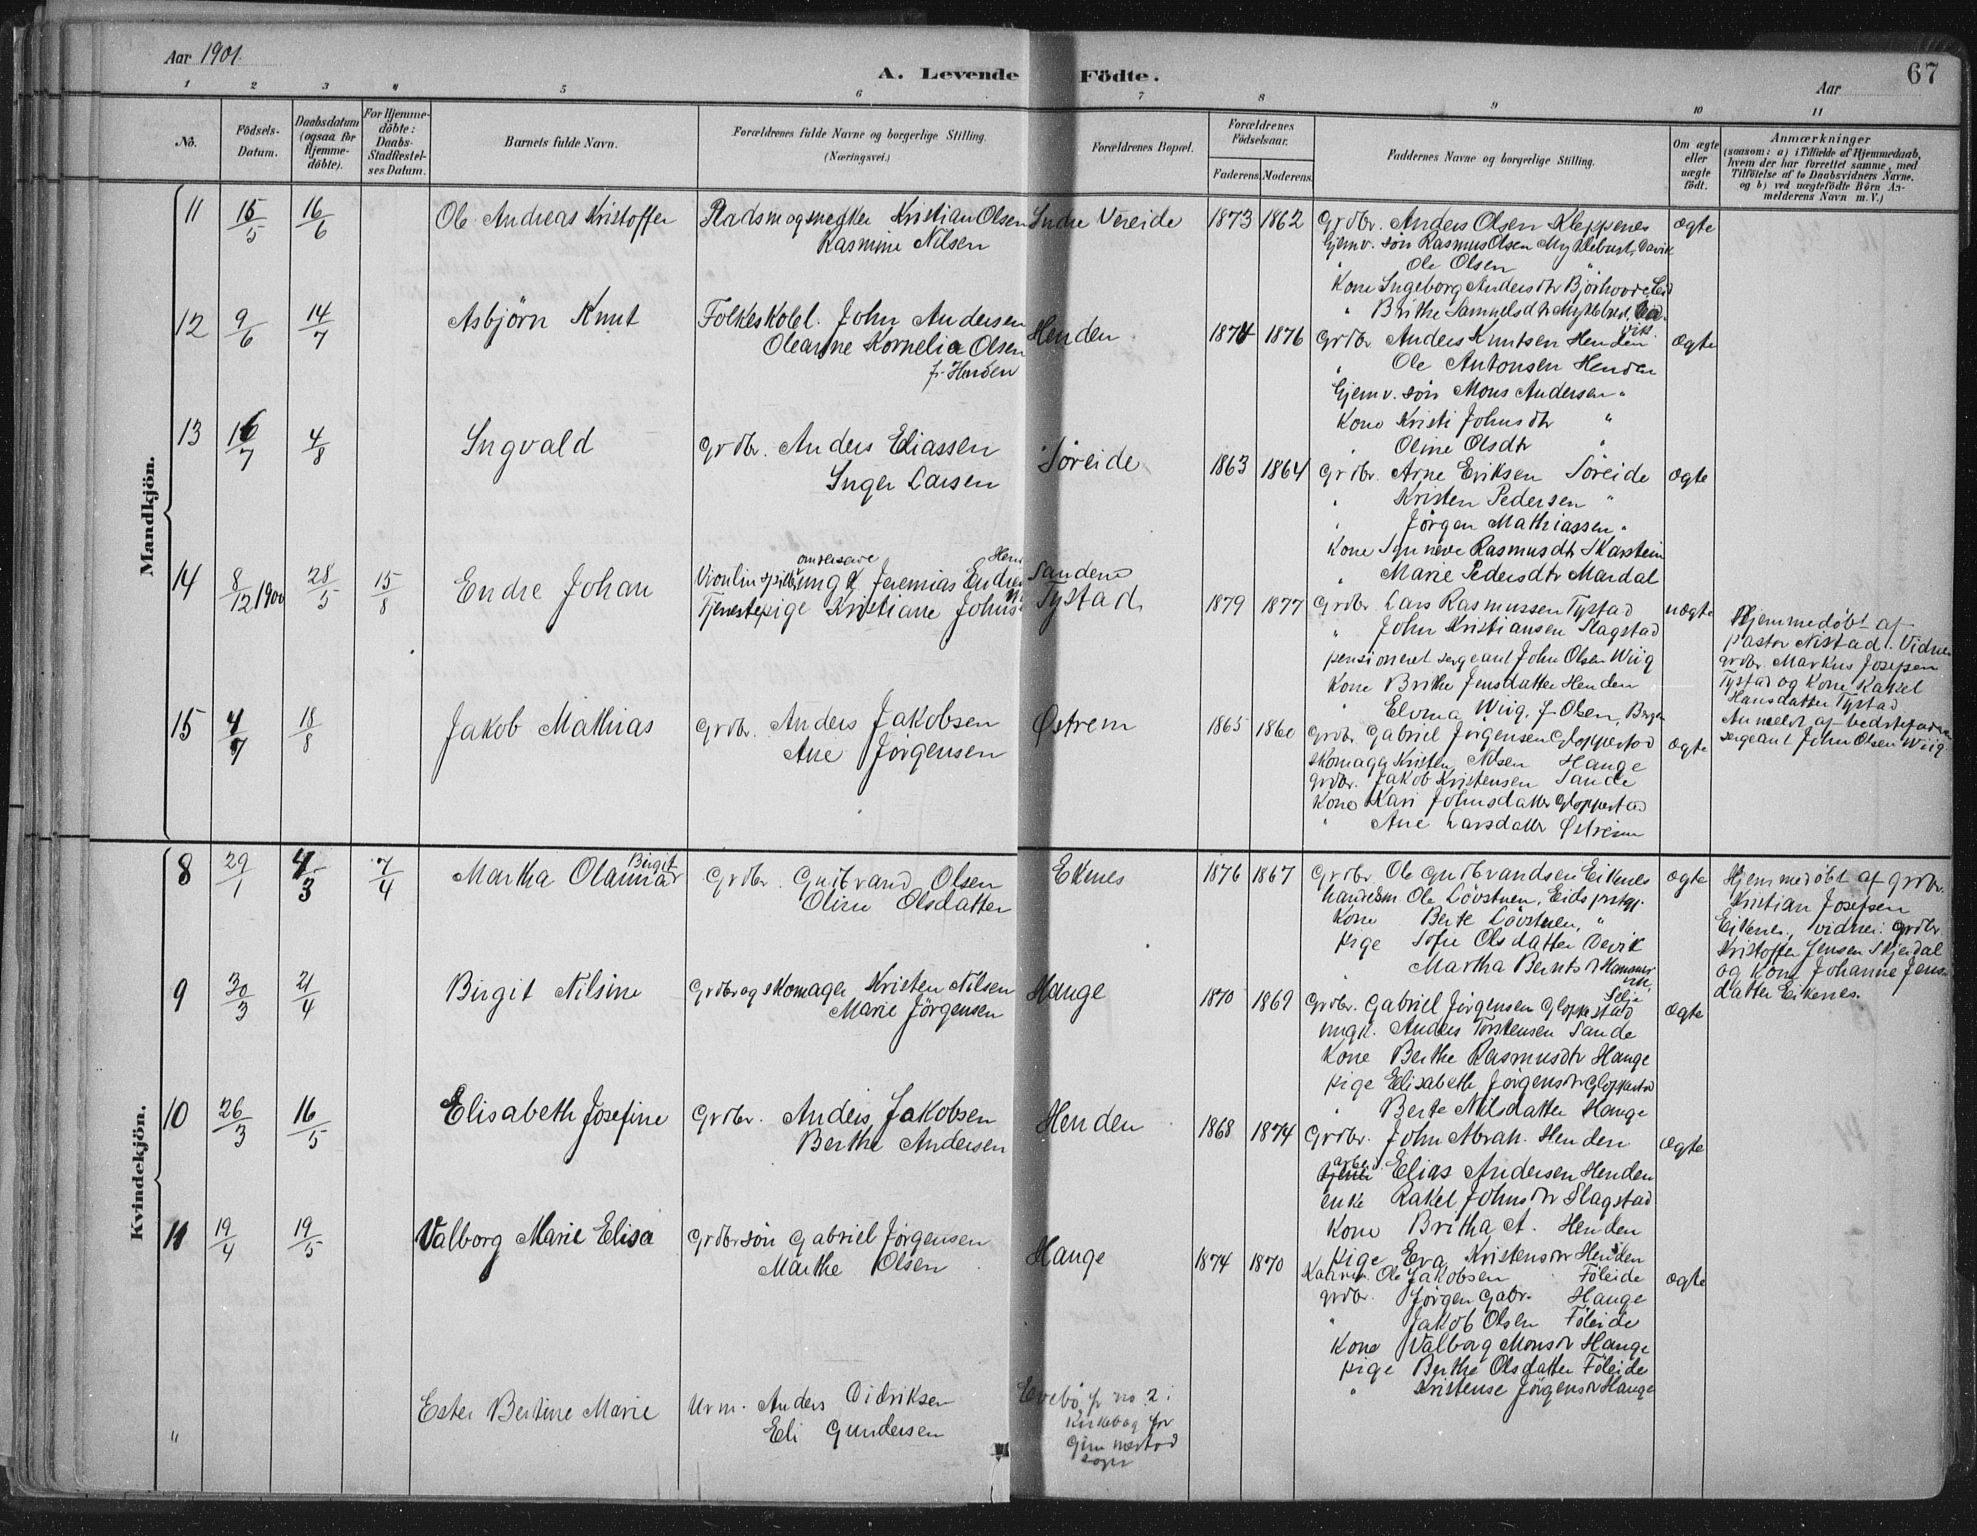 Aar 1901.
A. Levende Födte.
Aar
67
1 2 3 4 5 6 7 8 9 10 11
No.
Födsels-Datum.
Daabsdatum (ogsaa for Hjemme-döbte).
For Hjemme-döbte: Daabs-Stadfæstel-ses Datum.
Barnets fulde Navn.
Forældrenes fulde Navne og borgerlige Stilling.
(Næringsvei.)
Forældrenes Bopæl.
Forældrenes Födselsaar.
Faderens. Moderens.
Faddernes Navne og borgerlige Stilling.
Om ægte eller uægte födt.
Anmærkninger
(saasom: a) i Tilfælde af Hjemmedaab,
hvem der har forrettet samme, med
Tilföielse af to Daabsvidners Navne.
og b) ved uægtefödte Börn An-
melderens Navn m. V.)
Mandkjön.
11 15/5 16/6 Ole Andreas Kristoffer Pladsm og snedker Kristian Olsen Indre Vereide 1873 1862 Grdbr. Anders Olsen Kleppenes ægte
Rasmine Nilsen
Gjemv. søn Rasmus Olsen Myklebust, Davik
" Ole Olsen "
Kone Ingeborg Andersdtr Bjørhovde, Eid
" Brithe Samuelsdtr Myklebust, Davik
12 9/6 14/7 Asbjörn Knut Folkeskolel. John Andersen Henden 1874 1876 Grdbr. Anders Knutsen Henden ægte
Oleanne Kornelia Olsen
f. Henden
" Ole Antonsen Henden
Gjemv. søn Mons Andersen "
Kone Kristi Johnsdtr "
" Oline Olsdtr "
13 16/7 4/8 Ingvald Grdbr. Anders Eliassen Søreide 1863 1864 Grdbr. Arne Eriksen Søreide ægte
Inger Larsen
" Kristen Pedersen "
" Jørgen Mathiassen "
Kone Synneve Rasmusdtr Skarstein
" Marie Pedersdtr Mardal
14 8/12 1900 28/5 15/8 Endre Johan omreisende Violinspiller ungk Jeremias Endre Sanden
Tjenestepige Kristiane Johns Tystad 1879 1877 Grdbr. Lars Rasmussen Tystad uægte
" John Kristiansen Slagstad
pensioneret sergeant John Olsen Wiig
Kone Brithe Jensdatter Henden
" Elvina Wiig, f. Olsen, Bergen
Hjemmedöbt af
pastor Nistad. Vidner
grdbr. Markus Josefsen
Tystad og Kone Rakel
Hansdatter Tystad.
Anmeldt af bedstefaderen
sergeant John Olsen Wiig.
15 4/7 18/8 Jakob Mathias Grdbr. Anders Jakobsen Østrem 1865 1860 Grdbr. Gabriel Jørgensen Gloppestad ægte
Ane Jørgensen
skomager Kristen Nilsen Hauge
grdbr. Jakob Kristensen Sande
Kone Kari Johnsdatter Gloppestad
" Ane Larsdatter Østrem
Kvindekjön.
8 29/1 4/3 7/4 Martha Olamar Birgit Grdbr. Gudbrand Olsen Eikenes 1876 1867 Grdbr. Ole Gudbrandsen Eikenes ægte
Oline Olsdatter
handelsm Ole Lövstuen, Eids prstgj.
Kone Berte Lövstuen, "
pige Sofie Olsdatter Devik
" Martha Berntsdtr Hammer
Selje
Hjemmedöbt af grdbr.
Kristian Josefsen
Eikenes, vidner: grdbr.
Kristoffer Jensen Skjerdal
og Kone Johanne Jens-
datter Eikenes.
9 30/3 21/4 Birgit Nilsine Grdbr og skomager Kristen Nilsen Hauge 1870 1869 Grdbr. Gabriel Jørgensen Gloppestad ægte
Marie Jørgensen
ungk. Anders Torstensen Sande
Kone Berthe Rasmusdtr Hauge
pige Elisabeth Jørgensdtr Gloppestad
" Berte Nilsdatter Hauge
10 26/3 16/5 Elisabeth Josefine Grdbr. Anders Jakobsen Henden 1868 1874 Grdbr. John Abrah. Henden ægte
Berthe Andersen
arbeid Elias Andersen Henden
enke Rakel Johnsdtr Slagstad
Kone Britha A. Henden
pige Eva Kristensdtr Henden
11 19/4 19/5 Valborg Marie Elisa Grdbrsön Gabriel Jørgensen Hauge 1874 1870 Kaarm. Ole Jakobsen Føleide ægte
Marthe Olsen
grdbr. Jørgen Gabr. Hauge
" Jakob Olsen Føleide
Kone Valborg Monsdr Hauge
pige Berthe Olsdatter Føleide
" Kristense Jørgensdr Hauge
" Ester Bertine Marie Urm. Anders Didriksen Evebø, fr no. 2 i
Eli Gundersen kirkebog for
Gimmestad
sogn